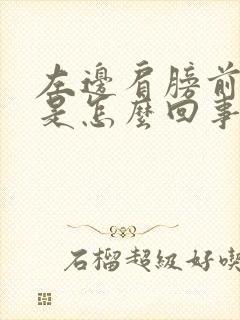 左邊肩膀前
是怎麼回事
石榴超級好喫